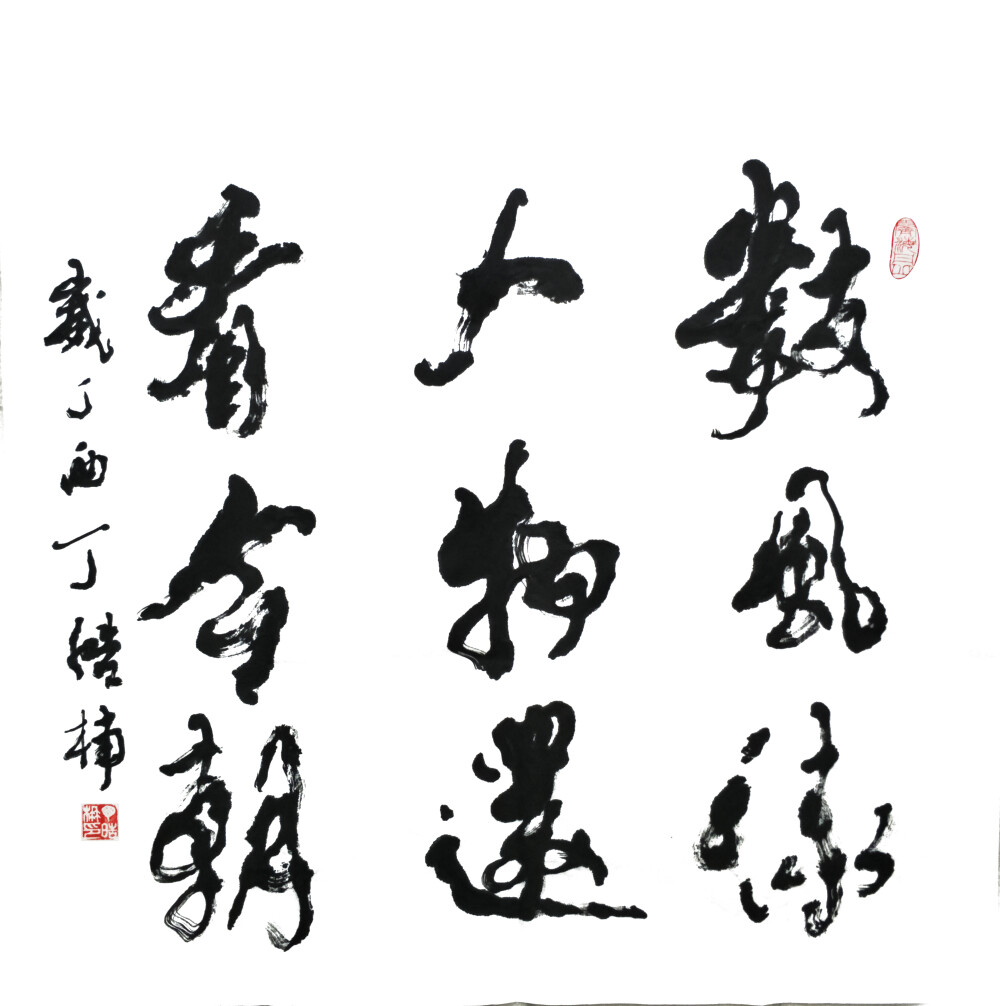 數風流
人物還
看今朝
歲丁酉丁